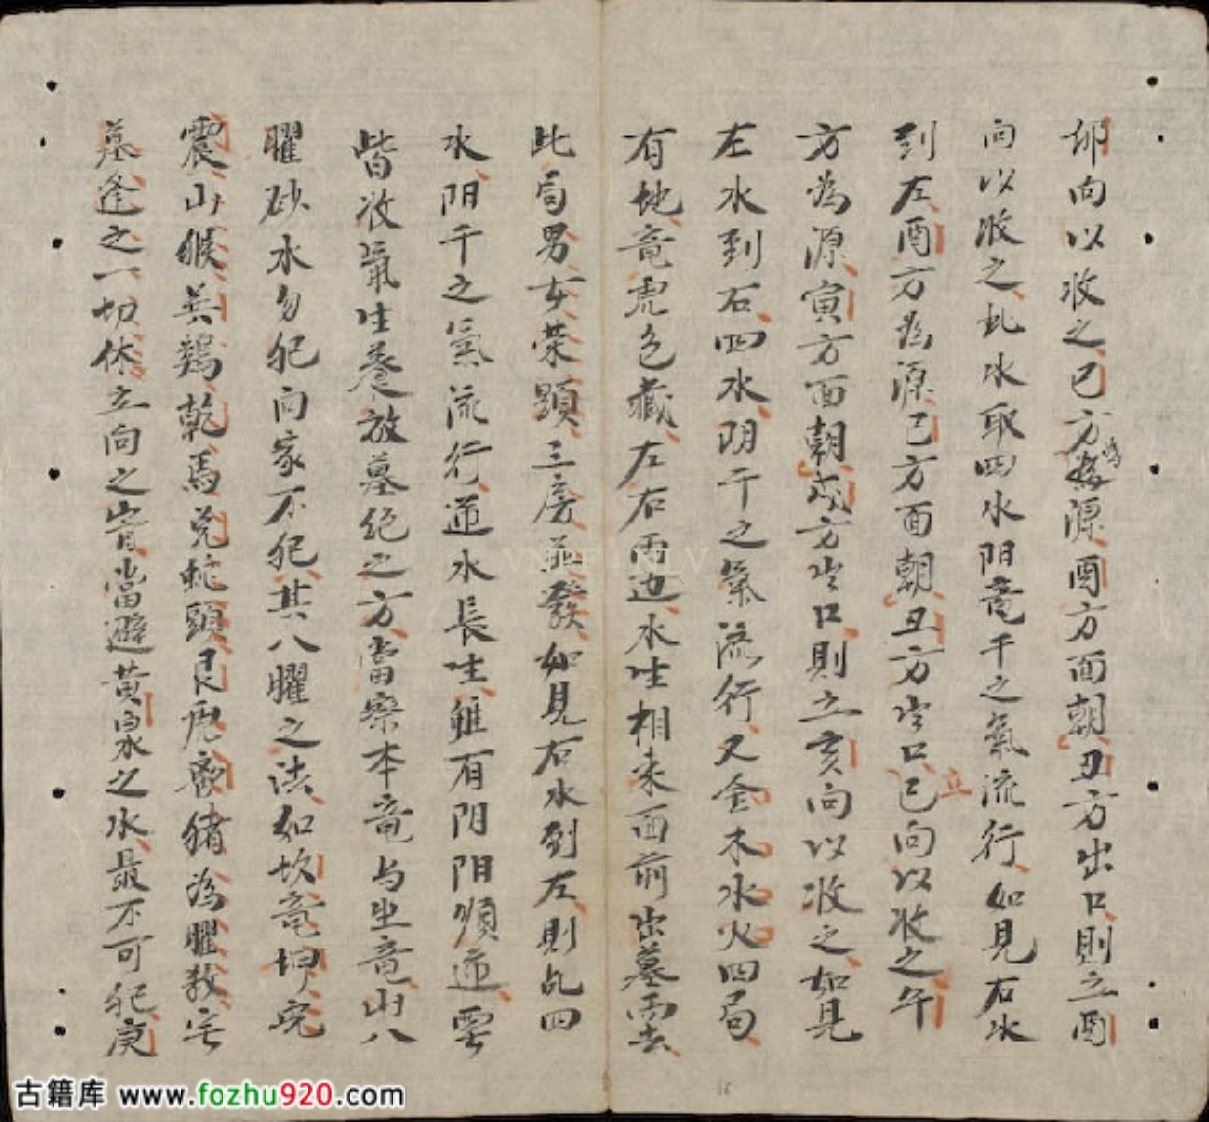 卯向以收之巳方為源酉方面朝丑方出口則立酉
向以收之此水取四水阳竜干之氣流行如見右水
到左酉方为源巳方面朝丑方出口立巳向以收之午
方為源寅方面朝戌方出口則立亥向以收之如見
左水到右四水阴干之氣流行又金木水火四局
有地竜虎包藏左右両边水生相来面前出墓而去
此局男女荣顕三房並發如見右水到左則凡四
水阴干之氣流行逆水長生雖有阴阳順逆要
皆收氣生養放墓绝之方當察本竜与坐竜山八
曜砂水勿犯向家不犯其八曜之法如坎竜坤兔
震山猴巽鷄乾馬兌蛇頭艮虎离猪為曜教宅
墓逢之一切休立向之时當避黄泉之水最不可犯庚
古籍库 www.fozhu920.com